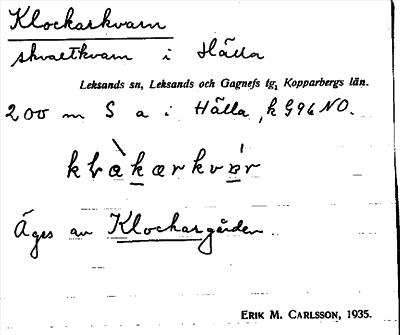 Klockarkvarn
skvaltkvarn i Hälla
Leksands sn, Leksands och Gagnefs tg, Kopparbergs län.
200 m S a i Hälla, k G96 NO.
Äges av Klockargården.
ERIK M. CARLSSON, 1935.